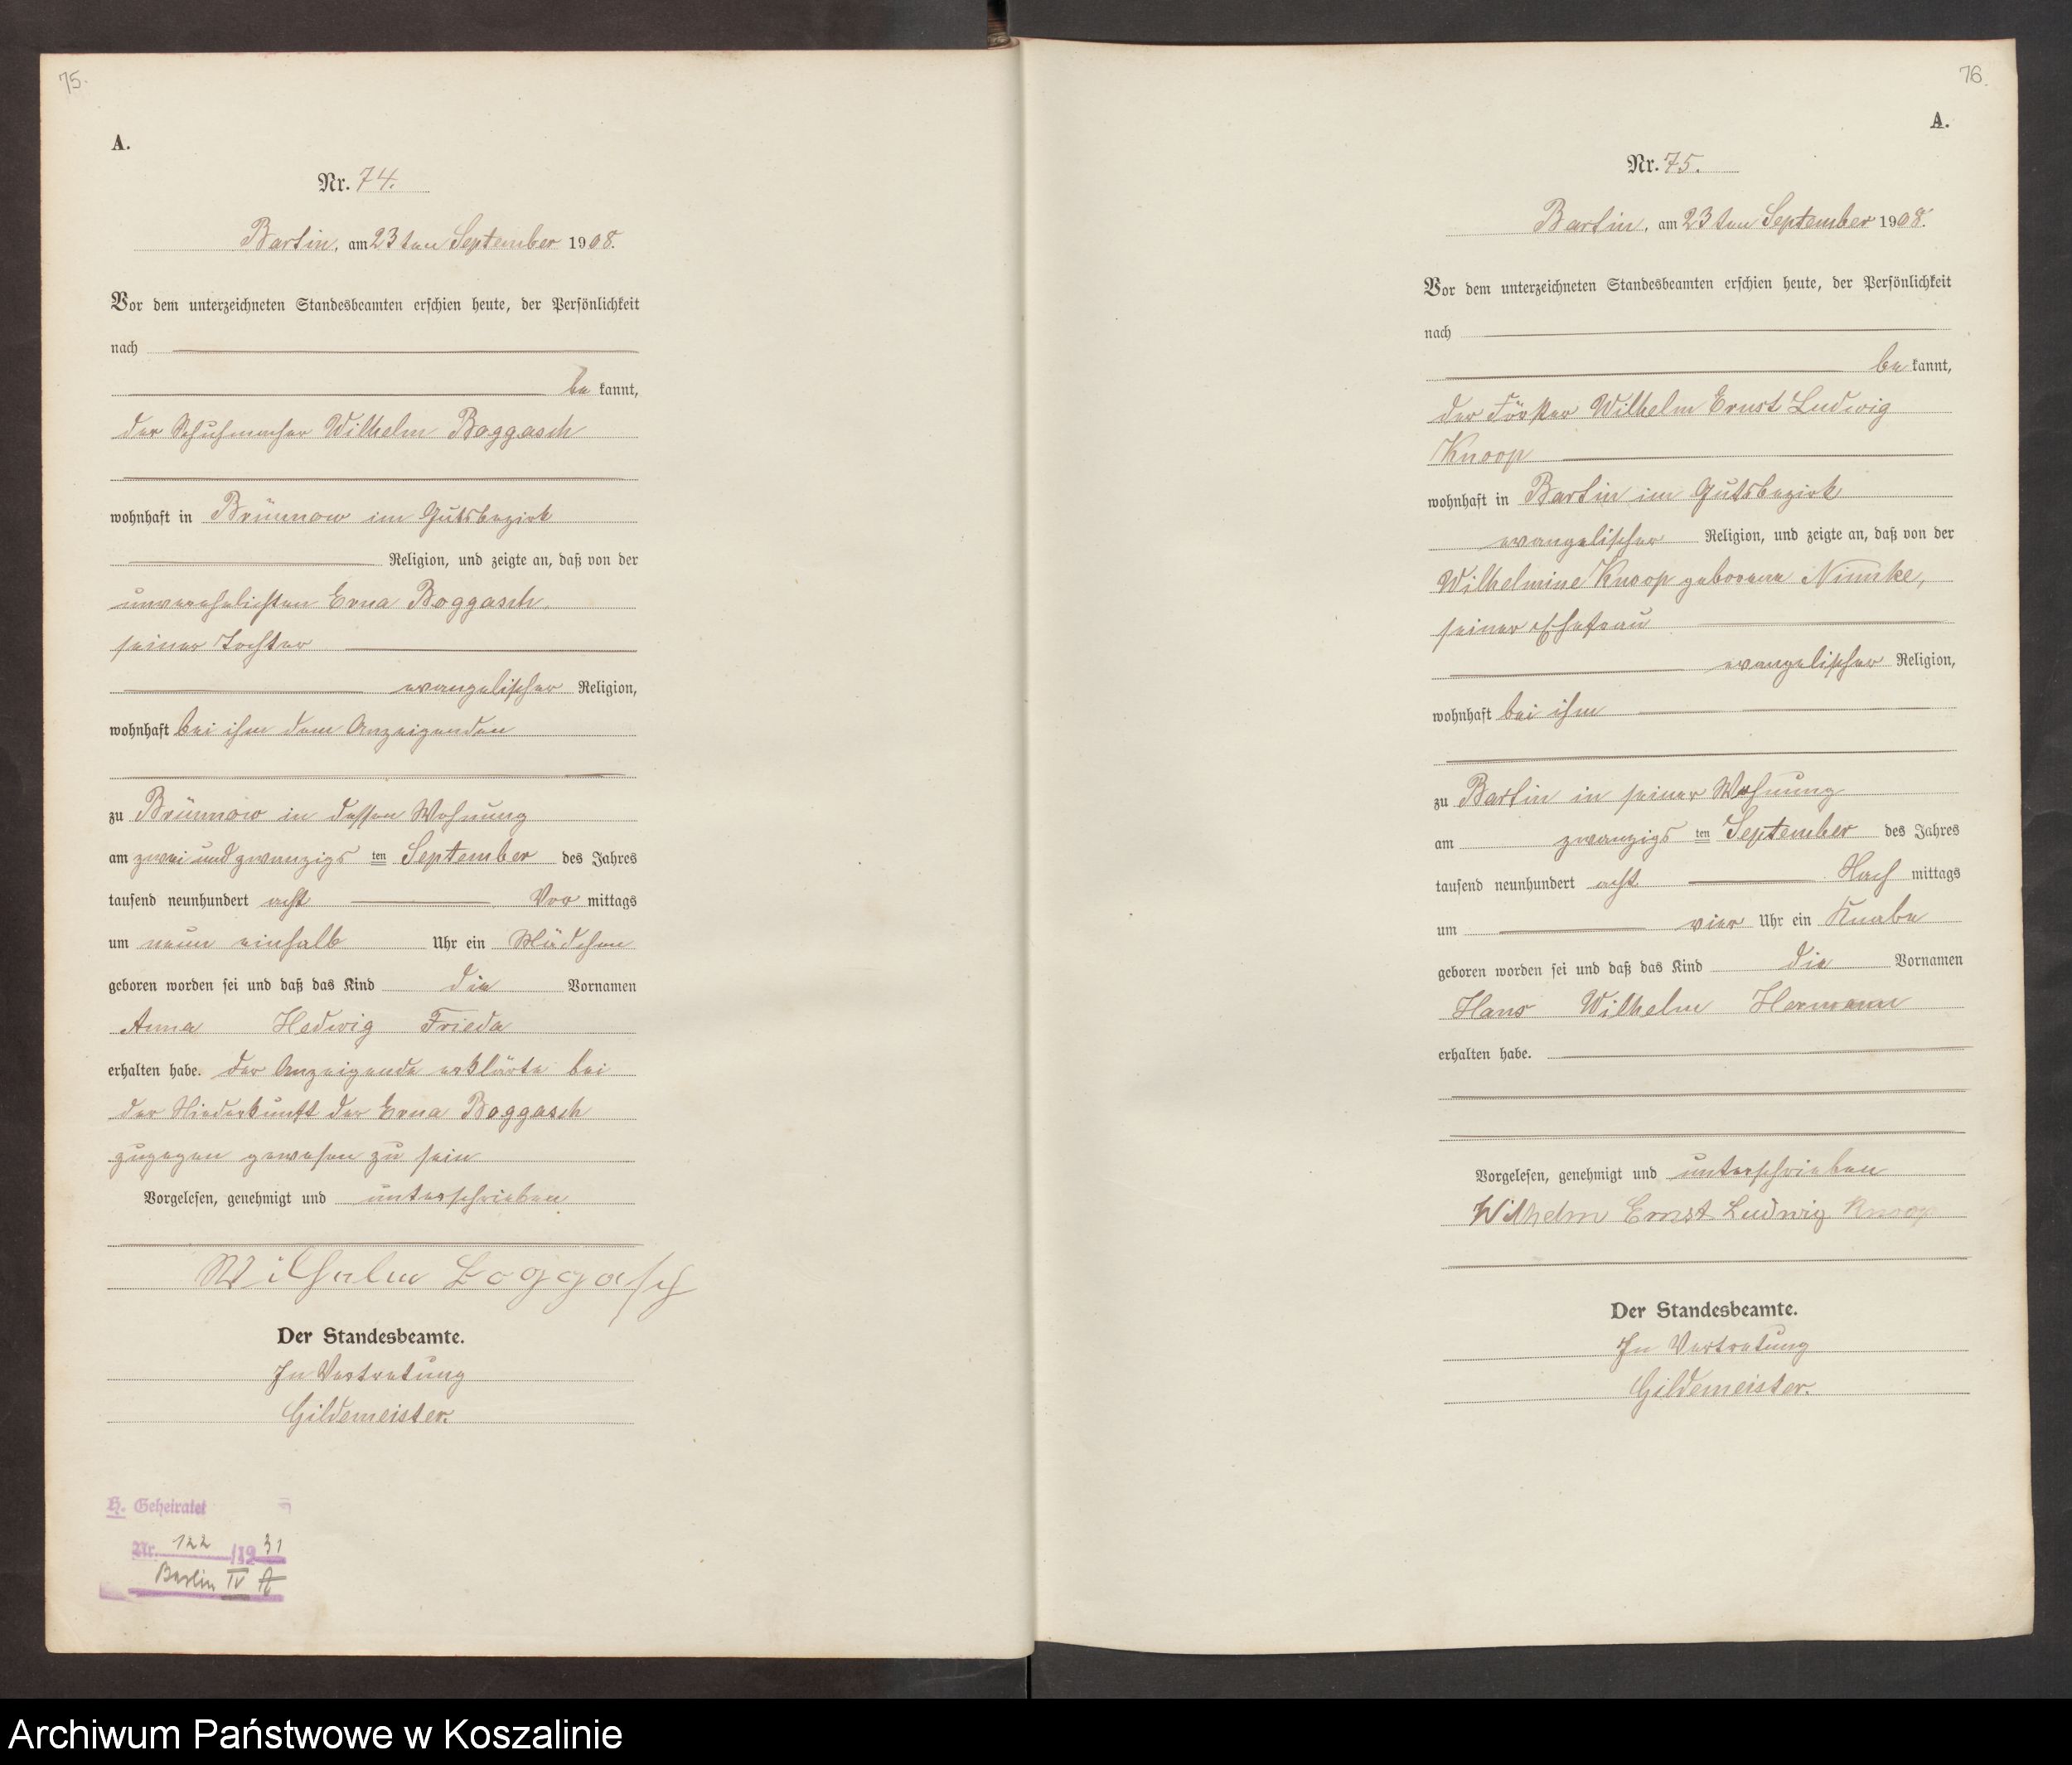 75.
A.
Nr. 74.
Bartin, am 23ten September 1908.
Vor dem unterzeichneten Standesbeamten erschien heute, der Persönlichkeit
nach
be kannt,
der Schuhmacher Wilhelm Boggasch
wohnhaft in Brünnow im Gutsbezirk
Religion, und zeigte an, daß von der
unverehelichten Erna Boggasch,
seiner Tochter
evangelischer Religion,
wohnhaft bei ihm dem Anzeigenden
zu Brünnow in dessen Wohnung
am zwei und zwanzigs ten September des Jahres
tausend neunhundert acht Vor mittags
um neun einhalb Uhr ein Mädchen
geboren worden sei und daß das Kind die Vornamen
Anna Hedwig Frieda
erhalten habe. Der Anzeigende erklärte bei
der Niederkunft der Erna Boggasch
zugegen gewesen zu sein
Vorgelesen, genehmigt und unterschrieben
Wilhelm Boggasch
Der Standesbeamte.
In Vertretung
Gildemeister.
H. Geheiratet
Nr. 122 /1931
Berlin IV A
76.
A.
Nr. 75.
Bartin, am 23ten September 1908.
Vor dem unterzeichneten Standesbeamten erschien heute, der Persönlichkeit
nach
be kannt,
der Förster Wilhelm Ernst Ludwig
Knoop
wohnhaft in Bartin im Gutsbezirk
evangelischer Religion, und zeigte an, daß von der
Wilhelmine Knoop geborene Nimke,
seiner Ehefrau
evangelischer Religion,
wohnhaft bei ihm
zu Bartin in seiner Wohnung
am zwanzigs ten September des Jahres
tausend neunhundert acht Nach mittags
um vier Uhr ein Knabe
geboren worden sei und daß das Kind die Vornamen
Hans Wilhelm Hermann
erhalten habe.
Vorgelesen, genehmigt und unterschrieben
Wilhelm Ernst Ludwig Knoop
Der Standesbeamte.
In Vertretung
Gildemeister.
Archiwum Państwowe w Koszalinie